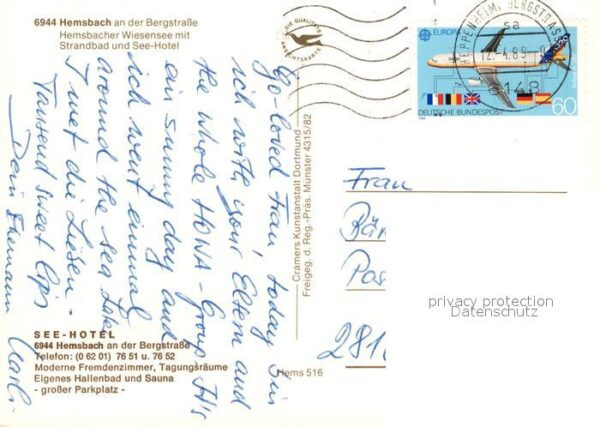 6944 Hemsbach an der Bergstraße
Hemsbacher Wiesensee mit
Strandbad und See-Hotel
DIE QUALITÄTS
ANSICHTSKARTE
EUROPA
A320
60
DEUTSCHE BUNDESPOST
HEPPENHEIM, BERGSTRASSE
sa
12.4.89
6148
Go-loved Frau today bin
ich with your Eltern and
the whole HOWA-Group. It's
ein sunny day and
ich went einmal
around the sea. Later
I met die Lieben.
Tausend sweet lips
Dein Ehemann
Cramers Kunstanstalt Dortmund
Freigeg. d. Reg.-Präs. Münster 4315/82
Frau
Bär
Pos
281
privacy protection
Datenschutz
SEE-HOTEL
6944 Hemsbach an der Bergstraße
Telefon: (0 62 01) 76 51 u. 76 52
Moderne Fremdenzimmer, Tagungsräume
Eigenes Hallenbad und Sauna
- großer Parkplatz -
Hems 516